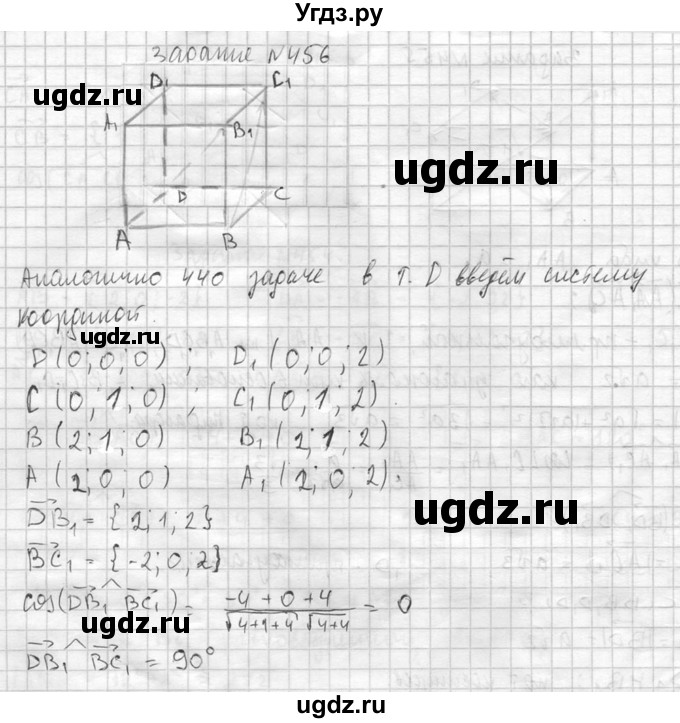 Угдз.ру
задание №456
D1 C1
ugdz.ru
A1 B1
ugdz.ru
D C
A B
Аналогично 440 задаче в т. D введём систему
координат.
ugdz.ru
D (0; 0; 0) ; D1 (0; 0; 2)
C (0; 1; 0) ; C1 (0; 1; 2)
B (2; 1; 0) B1 (2; 1; 2)
ugdz.ru
A (2; 0; 0) A1 (2; 0; 2).
DB1 = {2; 1; 2}
ugdz.ru
BC1 = {-2; 0; 2}
cos(DB1 ^ BC1) = -4 + 0 + 4 / √4+1+4 √4+4 = 0
ugdz.ru
DB1 ^ BC1 = 90°
ugdz.ru